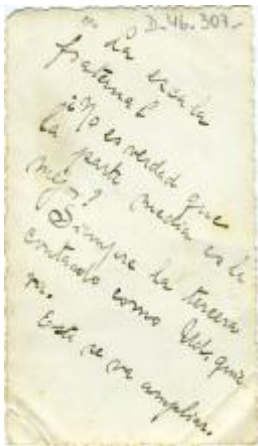 D-46.307.-
"La escala
fraternal
¿No es verdad que
la parte media es la
mejor?
Siempre la tercera
contando como Ud. quie
ra.
Esta se va ampliar.